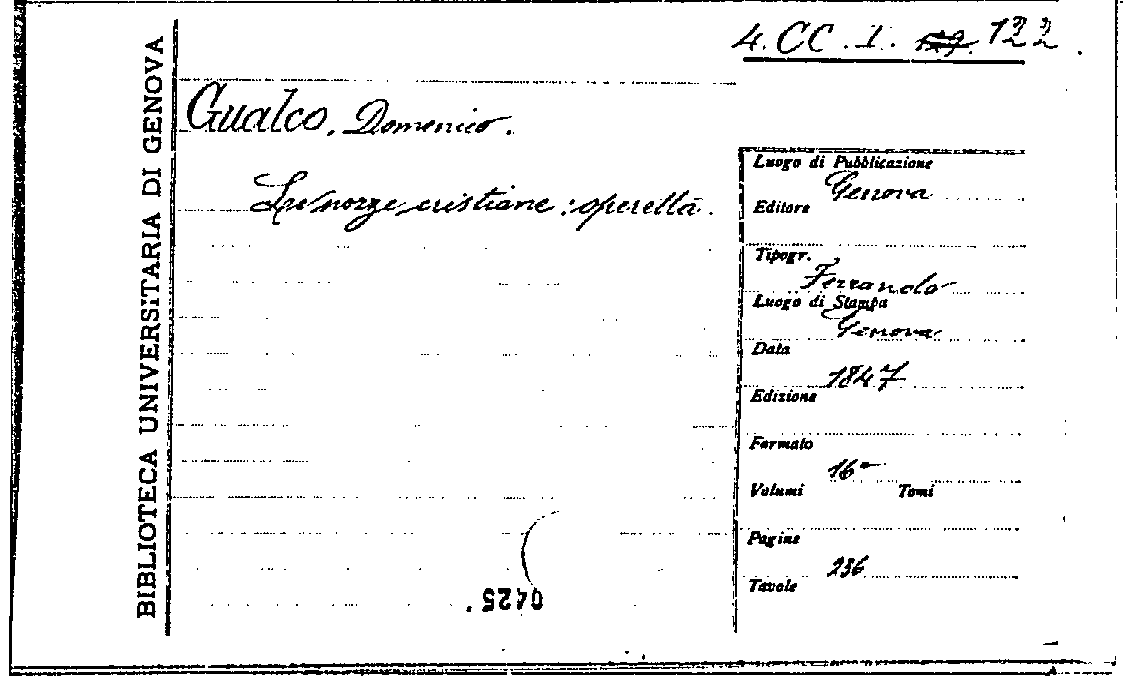 4. CC. I. 122.
BIBLIOTECA UNIVERSITARIA DI GENOVA
Gualco, Domenico.
Le nozze cristiane: operetta.
Luogo di Pubblicazione
Genova
Editore
Tipogr.
Ferrando
Luogo di Stampa
Genova
Data
1847
Edizione
Formato
16°
Volumi Tomi
Pagine
236
Tavole
0425